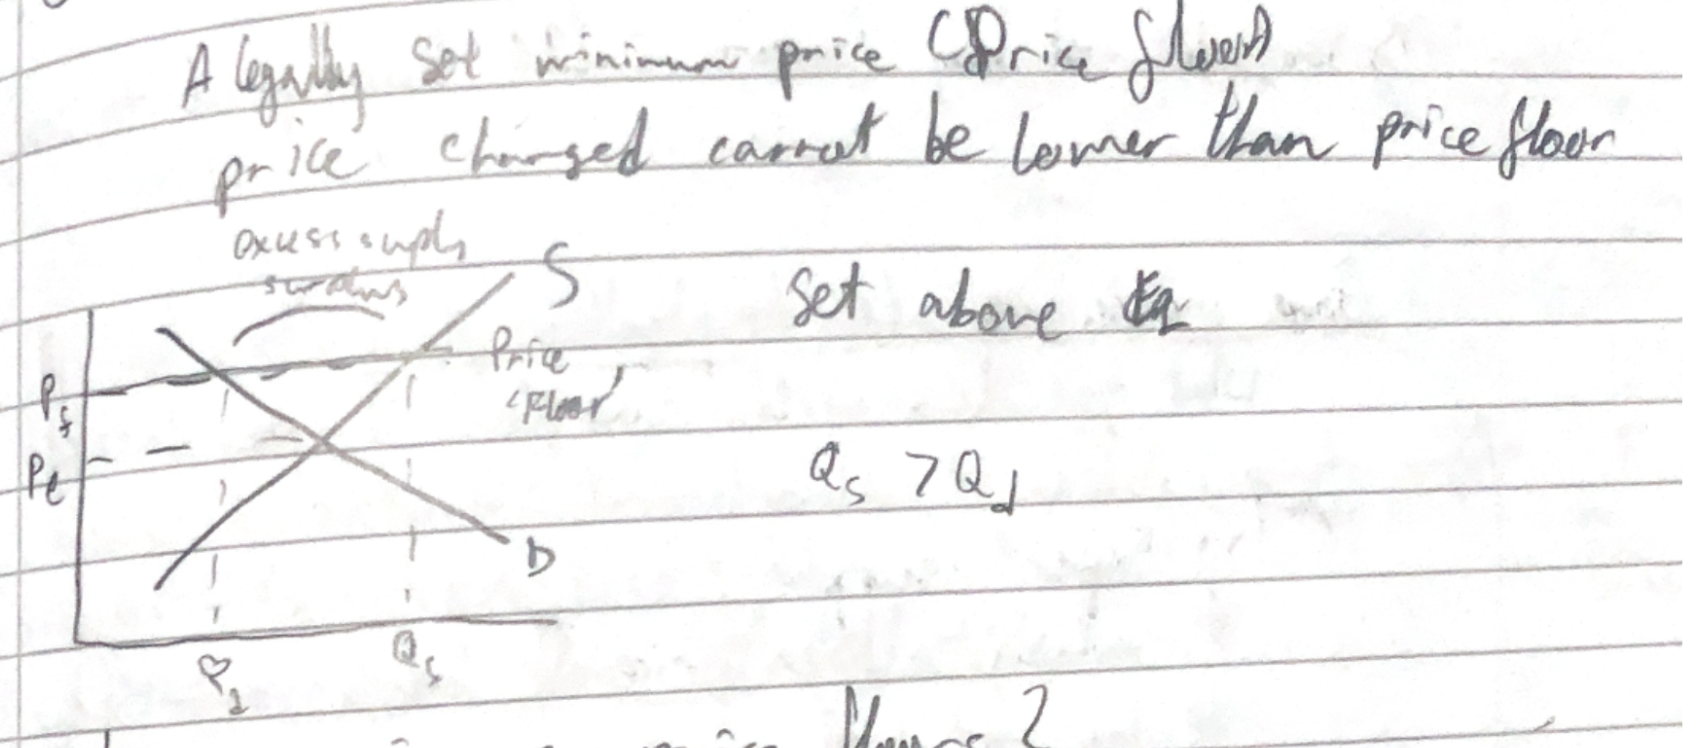 A legally set minimum price (Price floor)
price charged cannot be lower than price floor
excess supply
surplus
S
Set above Eq
Price
'Floor'
Pf
Pe
Qs > Qd
D
Qd
Qs
price floors?